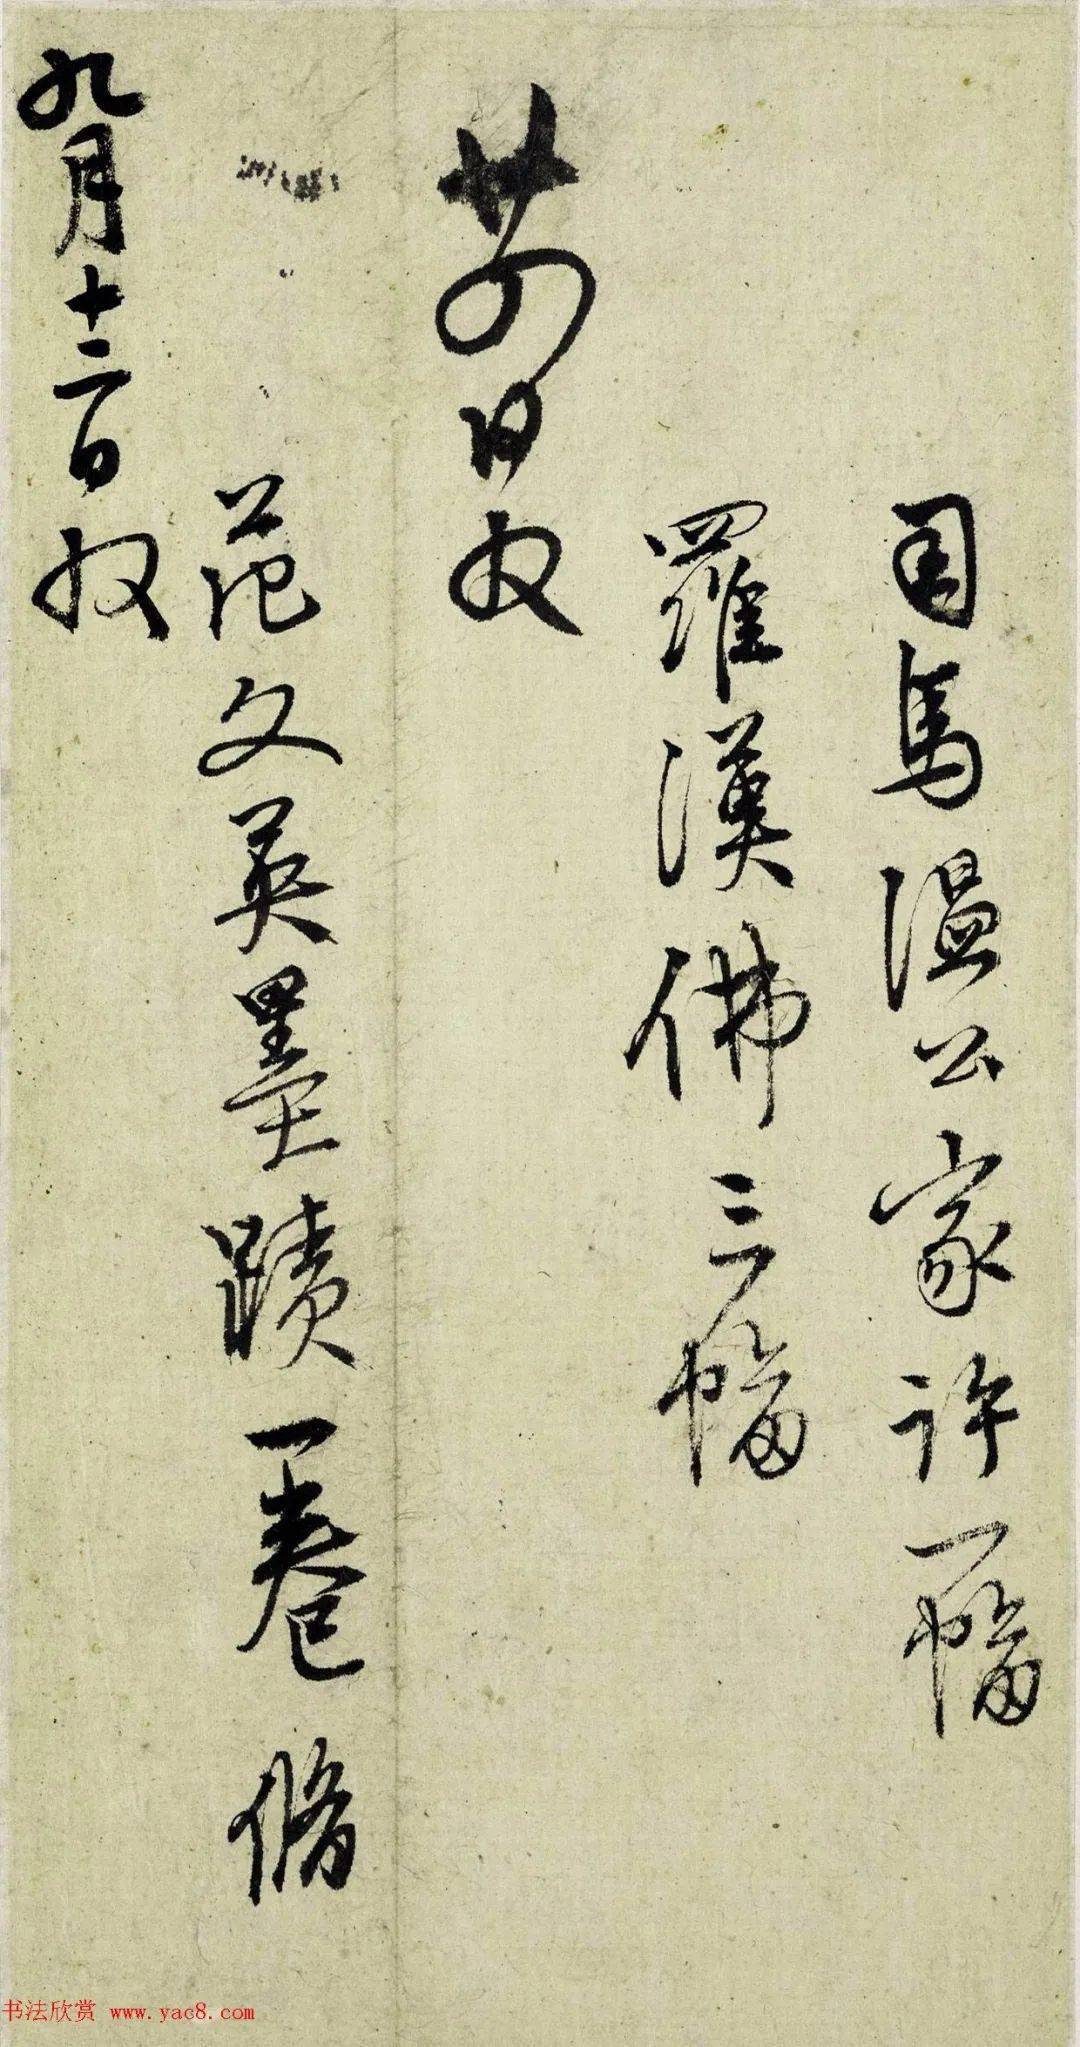 司馬溫公家許一幅
羅漢佛三幅
廿四日收
范文英墨蹟一卷 脩
九月十二日收
书法欣赏 www.yac8.com